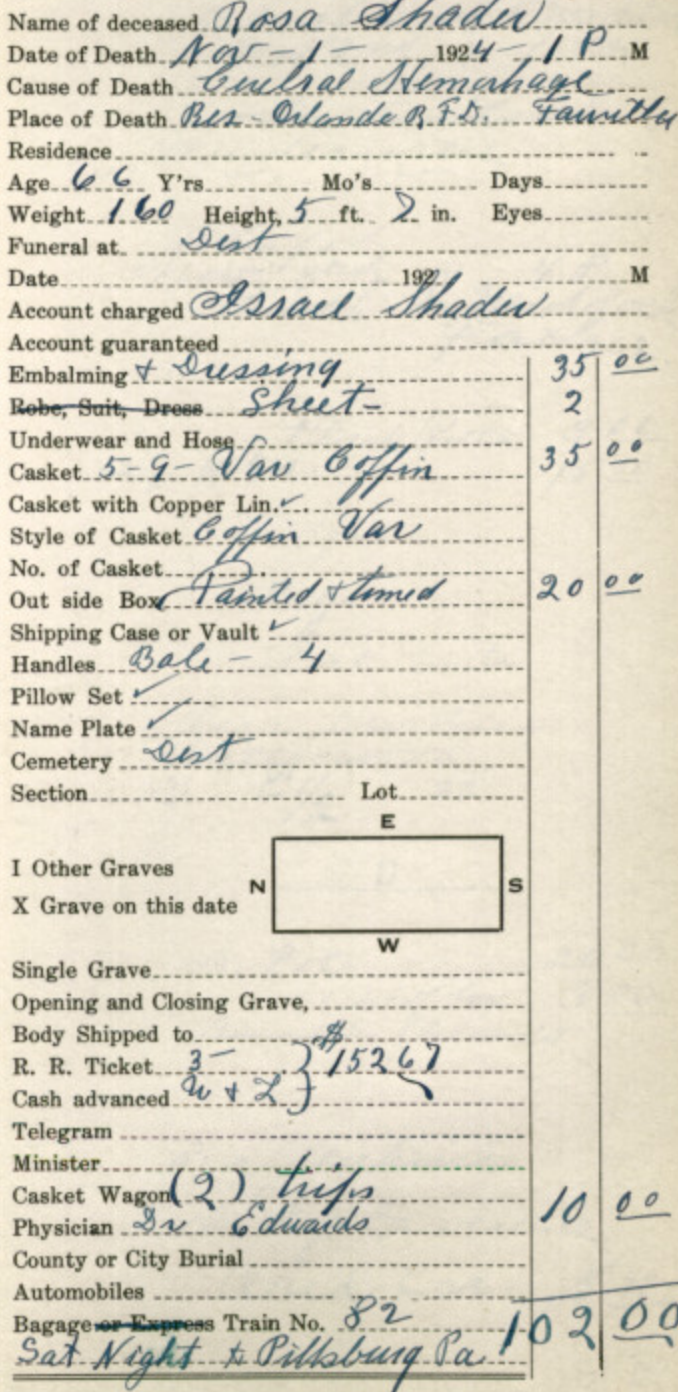 Name of deceased Rosa Shader
Date of Death Nov - 1 - 1924 - 1 P M
Cause of Death Cerebral Hemorhage
Place of Death Res - Orlando R.F.D.
Residence
Age 66 Y'rs Mo's Days
Weight 160 Height, 5 ft. 2 in. Eyes
Funeral at Dest
Date 192 M
Account charged Israel Shader
Account guaranteed
Embalming & Dressing 35 00
Robe, Suit, Dress Sheet - 2
Underwear and Hose
Casket 5-9- Var Coffin 35 00
Casket with Copper Lin. ✓
Style of Casket Coffin Var
No. of Casket
Out side Box Painted & 20 00
Shipping Case or Vault ✓
Handles Bale - 4
Pillow Set ✓
Name Plate ✓
Cemetery Dest
Section Lot
E
I Other Graves
N S
X Grave on this date
W
Single Grave
Opening and Closing Grave,
Body Shipped to
R. R. Ticket 3 - } $15267
Cash advanced
Telegram
Minister
Casket Wagon (2) trips 10 00
Physician Dr Edwards
County or City Burial
Automobiles
Bagage or Express Train No. 82 102 00
Sat Night to Pittsburg Pa